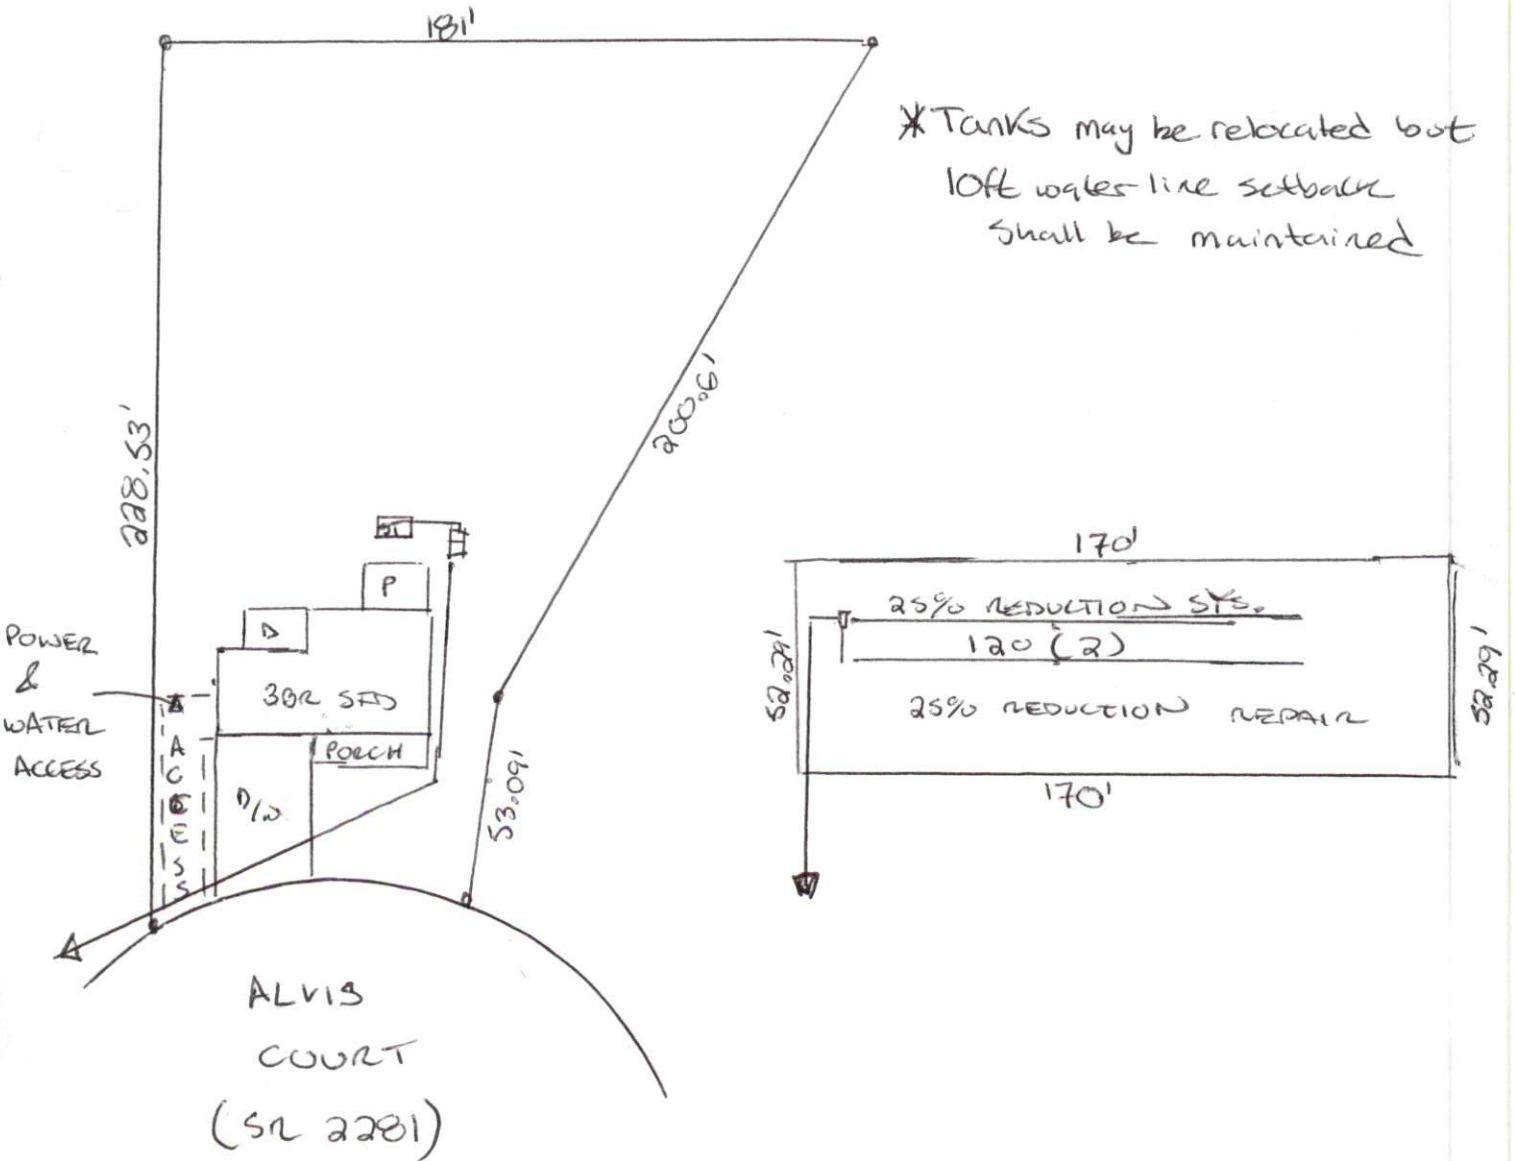 181'
*Tanks may be relocated but
10ft water line setback
shall be maintained
228.53'
200.6'
P
D
POWER
&
WATER
ACCESS
3BR SFD
PORCH
D/W
ACCESS
53.09'
170'
25% REDUCTION SYS.
120 (2)
25% REDUCTION REPAIR
52.29'
52.29'
170'
ALVIS
COURT
(SR 2281)